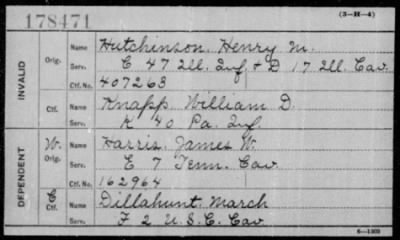 178471
(3—H—4)
INVALID
Orig. Name Hutchinson, Henry M.
Serv. C 47 Ill. Inf. & D 17 Ill. Cav.
Ctf. No. 407263
Ctf. Name Knapp, William D.
Serv. K 40 Pa. Inf.
DEPENDENT
W. Orig. Name Harris, James W.
Serv. E 7 Tenn. Cav.
Ctf. No. 162964
C Ctf. Name Dillahunt, March
Serv. F 2 U.S.C. Cav.
6—1303